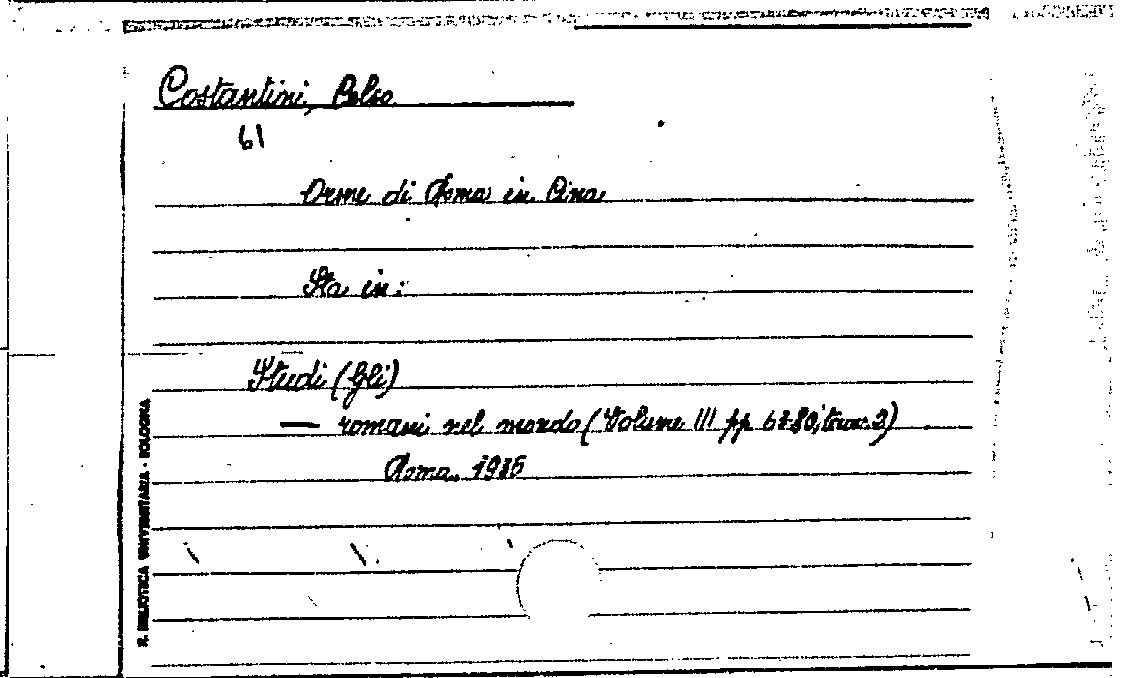 Costantini, Celso
61
Orme di Roma in Cina
Sta in:
Studi (Gli)
— romani nel mondo (Volume III pp 67-80, tavv. 2)
Roma, 1936
R. BIBLIOTECA UNIVERSITARIA - BOLOGNA